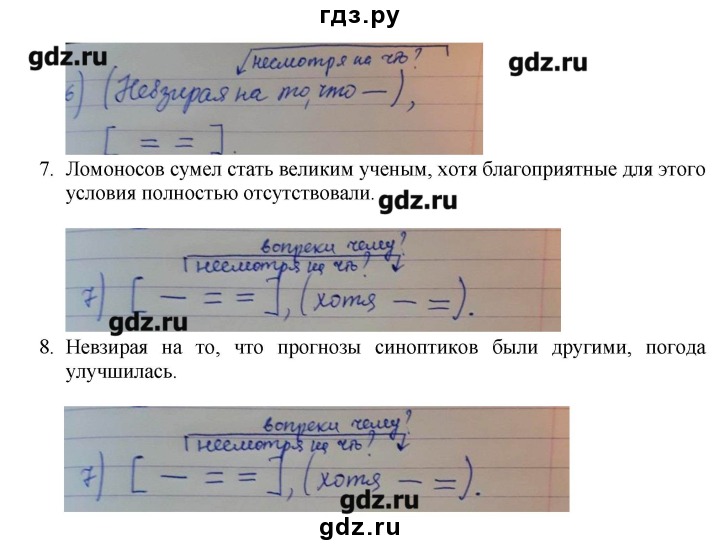 гдз.ру
gdz.ru
gdz.ru
несмотря на что?
6) (Невзирая на то, что —),
[ = = ].
7. Ломоносов сумел стать великим ученым, хотя благоприятные для этого
условия полностью отсутствовали.
gdz.ru
вопреки чему?
несмотря на что?
7) [ — = = ], (хотя — =).
gdz.ru
8. Невзирая на то, что прогнозы синоптиков были другими, погода
улучшилась.
вопреки чему?
несмотря на что?
7) [ — = = ], (хотя — =).
gdz.ru
gdz.ru